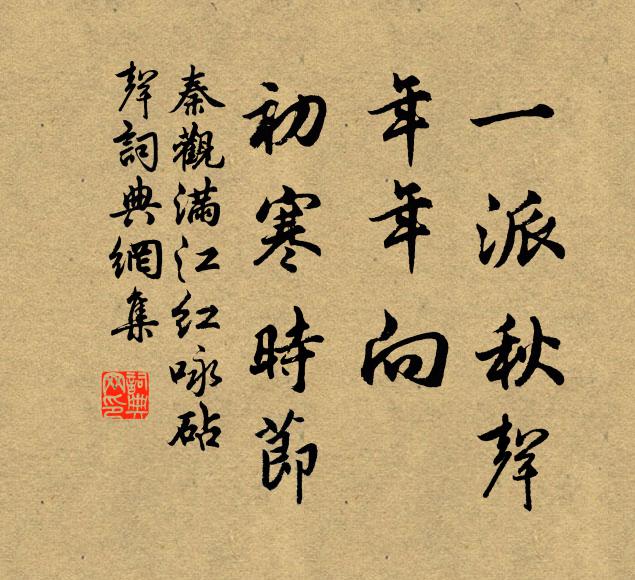 一派秋聲
年年向
初寒時節
秦觀滿江紅咏砧
聲詞典網集
詞典網印